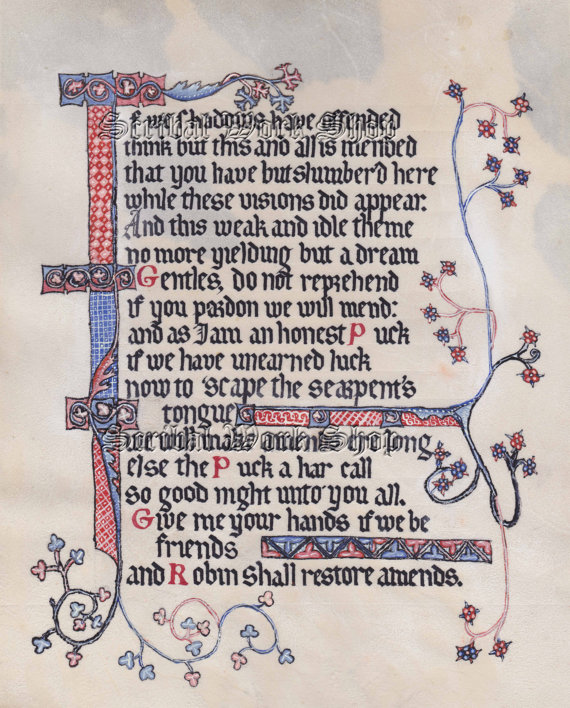 If we shadows have offended
Scribal Work Shop
think but this and all is mended
that you have but slumber'd here
while these visions did appear.
And this weak and idle theme
no more yielding but a dream
Gentles, do not reprehend
if you pardon we will mend:
and as I am an honest Puck
if we have unearned luck
now to 'scape the searpent's
tongue
we will make amends long,
Scribal Work Shop
else the Puck a liar call
so good night unto you all.
Give me your hands if we be
friends
and Robin shall restore amends.